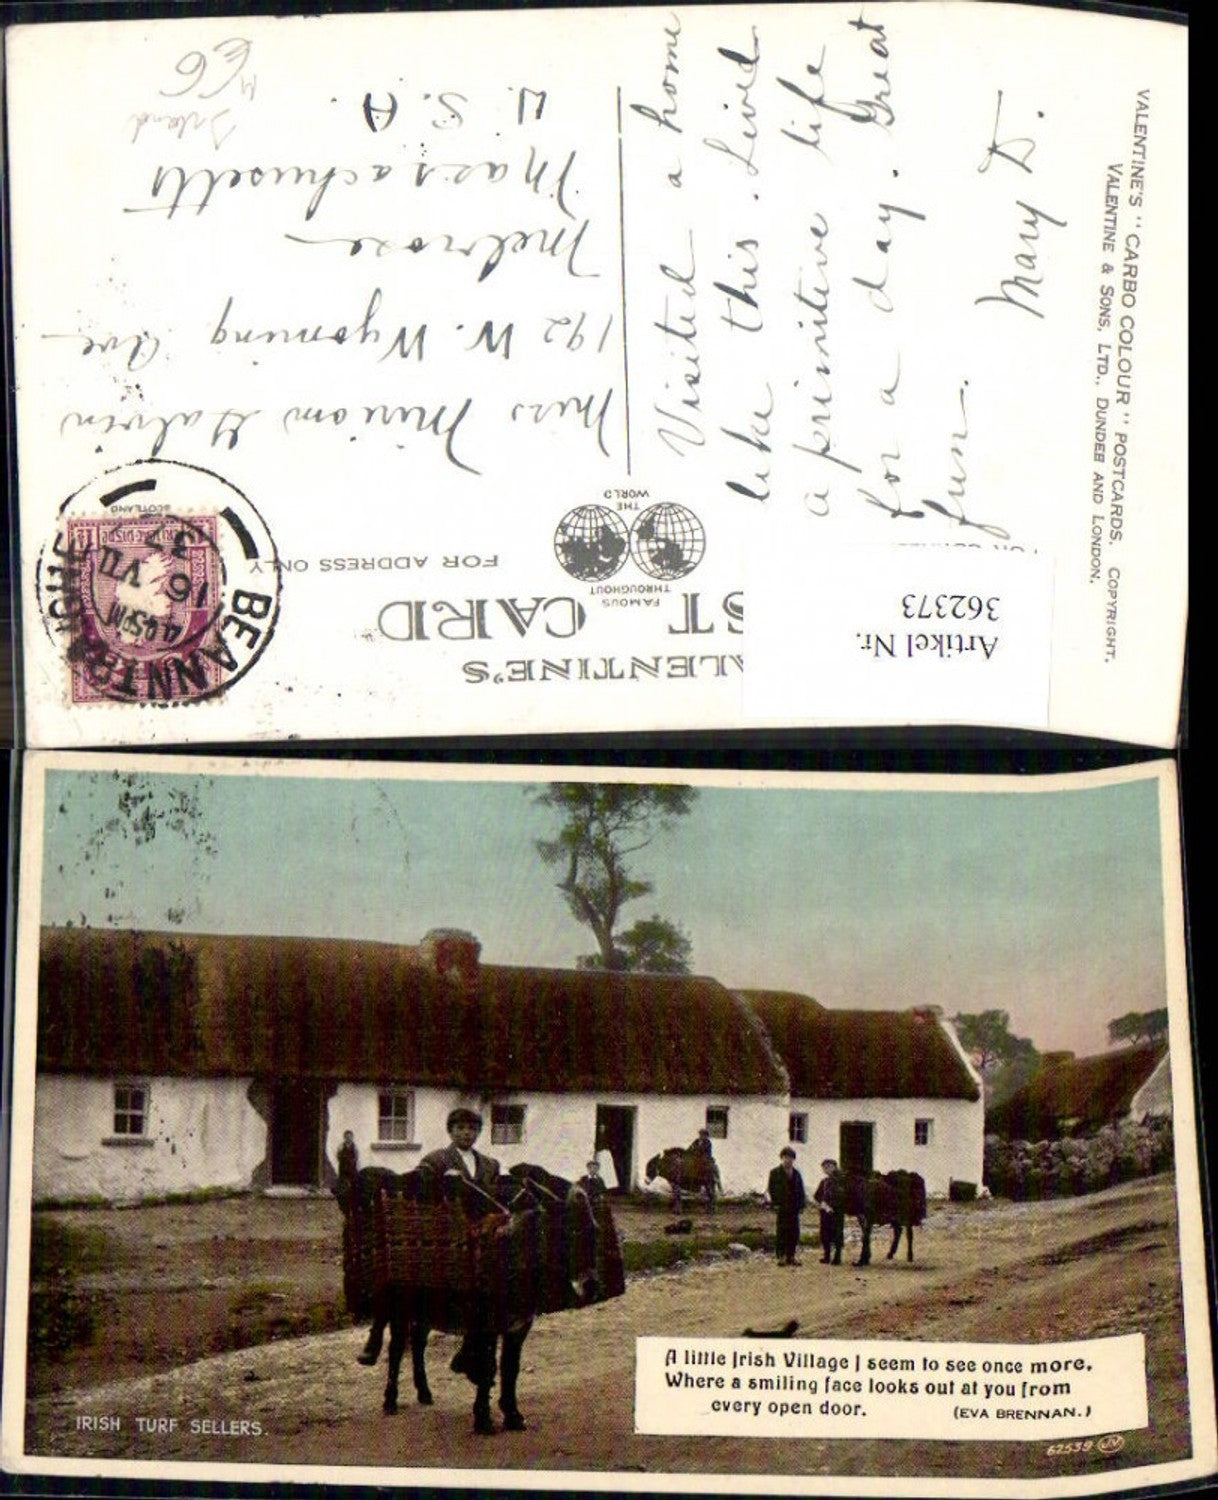 VALENTINE'S "CARBO COLOUR" POSTCARDS. COPYRIGHT.
VALENTINE & SONS, LTD., DUNDEE AND LONDON.
ALENTINE'S
ST CARD
FAMOUS
THROUGHOUT
THE
WORLD
FOR ADDRESS ONLY
SCOTLAND
Artikel Nr.
362373
BEANNTRAIGHE
4 45PM
16 VII
37
Visited a home
like this. Lived
a primitive life
for a day. Great
fun.
Mary D.
Miss Miriam Galvin
192 W. Wyoming Ave
Melrose
Massachusetts
U.S.A.
Irland
€6
A little Irish Village I seem to see once more,
Where a smiling face looks out at you from
every open door. (EVA BRENNAN.)
IRISH TURF SELLERS.
62539 JV